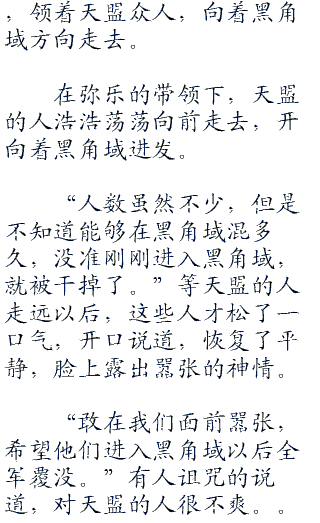 ，领着天盟众人，向着黑角
域方向走去。
在弥乐的带领下，天盟
的人浩浩荡荡向前走去，开
向着黑角域进发。
“人数虽然不少，但是
不知道能够在黑角域混多
久，没准刚刚进入黑角域，
就被干掉了。”等天盟的人
走远以后，这些人才松了一
口气，开口说道，恢复了平
静，脸上露出嚣张的神情。
“敢在我们面前嚣张，
希望他们进入黑角域以后全
军覆没。”有人诅咒的说
道，对天盟的人很不爽。。